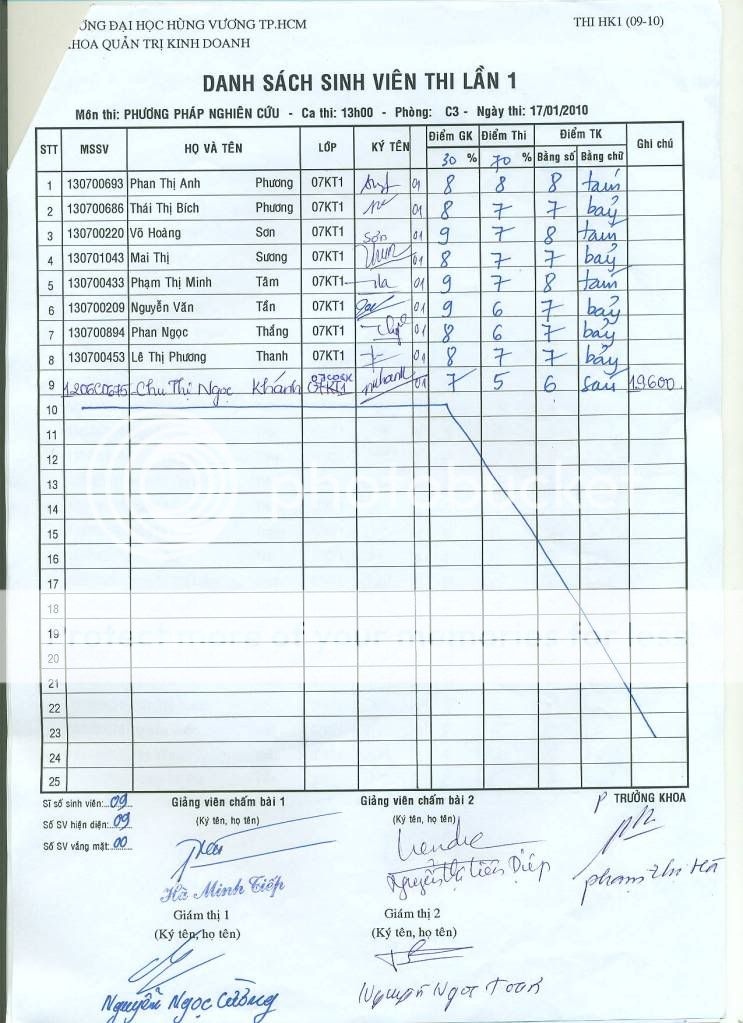 ỜNG ĐẠI HỌC HÙNG VƯƠNG TP.HCM THI HK1 (09-10)
KHOA QUẢN TRỊ KINH DOANH
DANH SÁCH SINH VIÊN THI LẦN 1
Môn thi: PHƯƠNG PHÁP NGHIÊN CỨU - Ca thi: 13h00 - Phòng: C3 - Ngày thi: 17/01/2010
STT MSSV HỌ VÀ TÊN LỚP KÝ TÊN Điểm GK Điểm Thi Điểm TK Ghi chú
30 % 70 % Bằng số Bằng chữ
1 130700693 Phan Thị Anh Phương 07KT1 01 8 8 8 tám
2 130700686 Thái Thị Bích Phương 07KT1 01 8 7 7 bảy
3 130700220 Võ Hoàng Sơn 07KT1 Sơn 01 9 7 8 tám
4 130701043 Mai Thị Sương 07KT1 01 8 7 7 bảy
5 130700433 Phạm Thị Minh Tâm 07KT1 9 7 8 tám
6 130700209 Nguyễn Văn Tần 07KT1 01 9 6 7 bảy
7 130700894 Phan Ngọc Thắng 07KT1 01 8 6 7 bảy
8 130700453 Lê Thị Phương Thanh 07KT1 01 8 7 7 bảy
9 1206C0675 Chu Thị Ngọc Khánh 07KT1 01 7 5 6 sáu 19600
10
11
12
13
14
15
16
17
18
19
20
21
22
23
24
25
photobucket
Sĩ số sinh viên: 09 Giảng viên chấm bài 1 Giảng viên chấm bài 2 P TRƯỞNG KHOA
Số SV hiện diện: 09 (Ký tên, họ tên) (Ký tên, họ tên)
Số SV vắng mặt: 00
Hà Minh Tiếp Nguyễn Thị Tiến Diệp phạm Thị Hà
Giám thị 1 Giám thị 2
(Ký tên, họ tên) (Ký tên, họ tên)
Nguyễn Ngọc Cường Nguyễn Ngọc Toàn